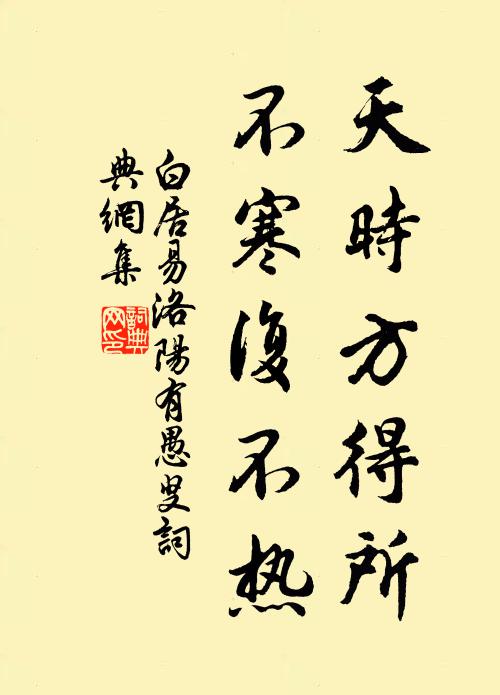 天時方得所
不寒復不热
白居易洛陽有愚叟詞
典網集
詞典
网印